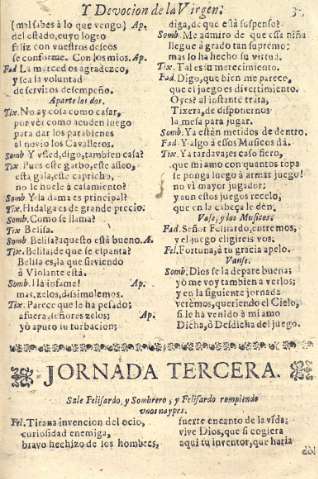 Y Devocion de la Virgen.
(mal sabes à lo que vengo) Ap.
del estado, cuyo logro
feliz con vuestros deseos
se conforme. Con los mios. Ap.
Fad. La merced os agradezco,
y sea la voluntad
de serviros desempeño.
Aparte los dos.
Tix. No ay cosa como casar,
por vèr como acuden luego
para dar los parabienes
al novio los Cavalleros.
Somb. Y usted, digo, tambien casa?
Tix. Pues este garbo, este asseo,
esta gala, este capricho,
no le huele à casamiento?
Somb. Y la dama es principal?
Tix. Hidalga es de grande precio.
Somb. Como se llama?
Tix. Belisa.
Somb. Belisa? aquesto està bueno. A.
Tix. Belisa; de que se espanta?
Belisa es, la que sirviendo
à Violante està.
Somb. Ha infame! Ap.
mas, zelos, dissimulemos.
Tix. Parece que le ha pesado;
afuera, señores zelos; Ap.
yo apuro tu turbacion;
diga, de que està suspenso?
Somb. Me admiro de que essa niña
llegue à grado tan supremo;
mas lo ha hecho su virtud.
Tix. Tal es tu merecimiento.
Fad. Digo, que bien me parece,
que el juego es divertimiento.
Oyes? al instante trata,
Tixera, de disponernos
la mesa para jugar.
Somb. Ya estàn metidos de dentro.
Fad. Y algo à essos Musicos dà.
Tix. Ya tardava; es caso fiero,
que mi amo con quantos topa
se ponga luego à armar juego!
no vì mayor jugador;
y son estos juegos recio,
que en la cabeça le dèn,
Vase, y los Musicos.
Fad. Señor Felisardo, entremos,
y el juego eligireis vos.
Fel. Fortuna, à tu gracia apelo.
Vanse.
Somb. Dios se la depare buena;
yo me voy tambien à verlos;
y en la siguiente jornada
verèmos, queriendo el Cielo,
si le ha venido à mi amo
Dicha, ò Desdicha del juego.
JORNADA TERCERA.
Sale Felisardo, y Sombrero, y Felisardo rompiendo
unos naypes.
Fel. Tirana invencion del ocio,
curiosidad enemiga,
bravo hechizo de los hombres,
fuerte encanto de la vida;
vive Dios, que si cogiera
aqui tu inventor, que haria